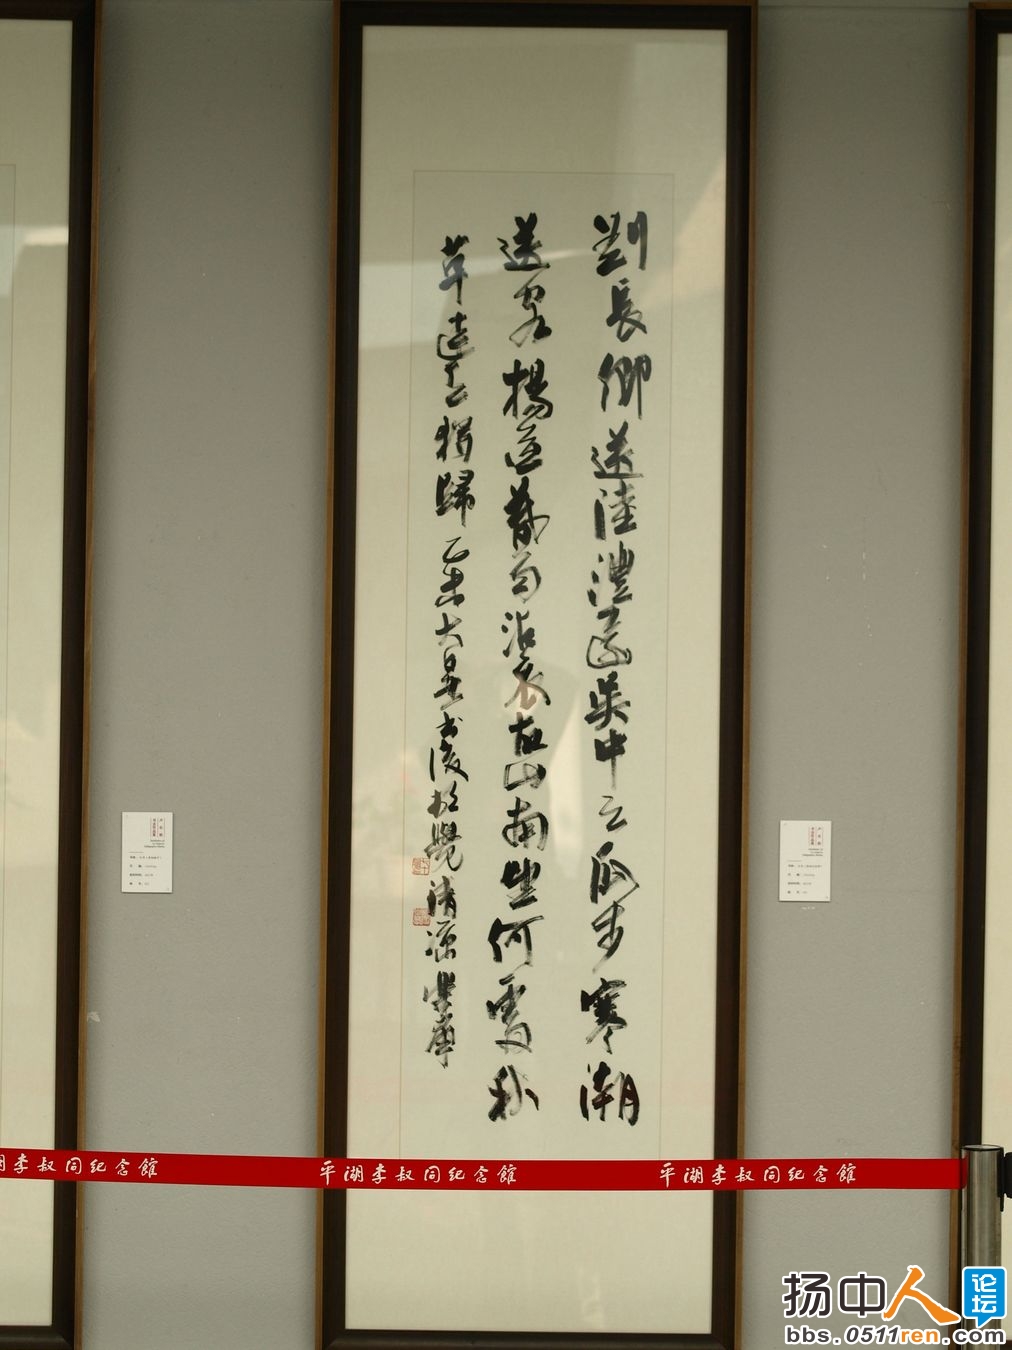 劉長卿送陸澧還吳中云瓜步寒潮
送客楊暮雨沾衣故山南望何處秋
草連天獨歸 乙未大暑書後覺清涼
湖李叔同紀念館
平湖李叔同紀念館
平湖李叔同紀念館
扬中人论坛
bbs.0511ren.com